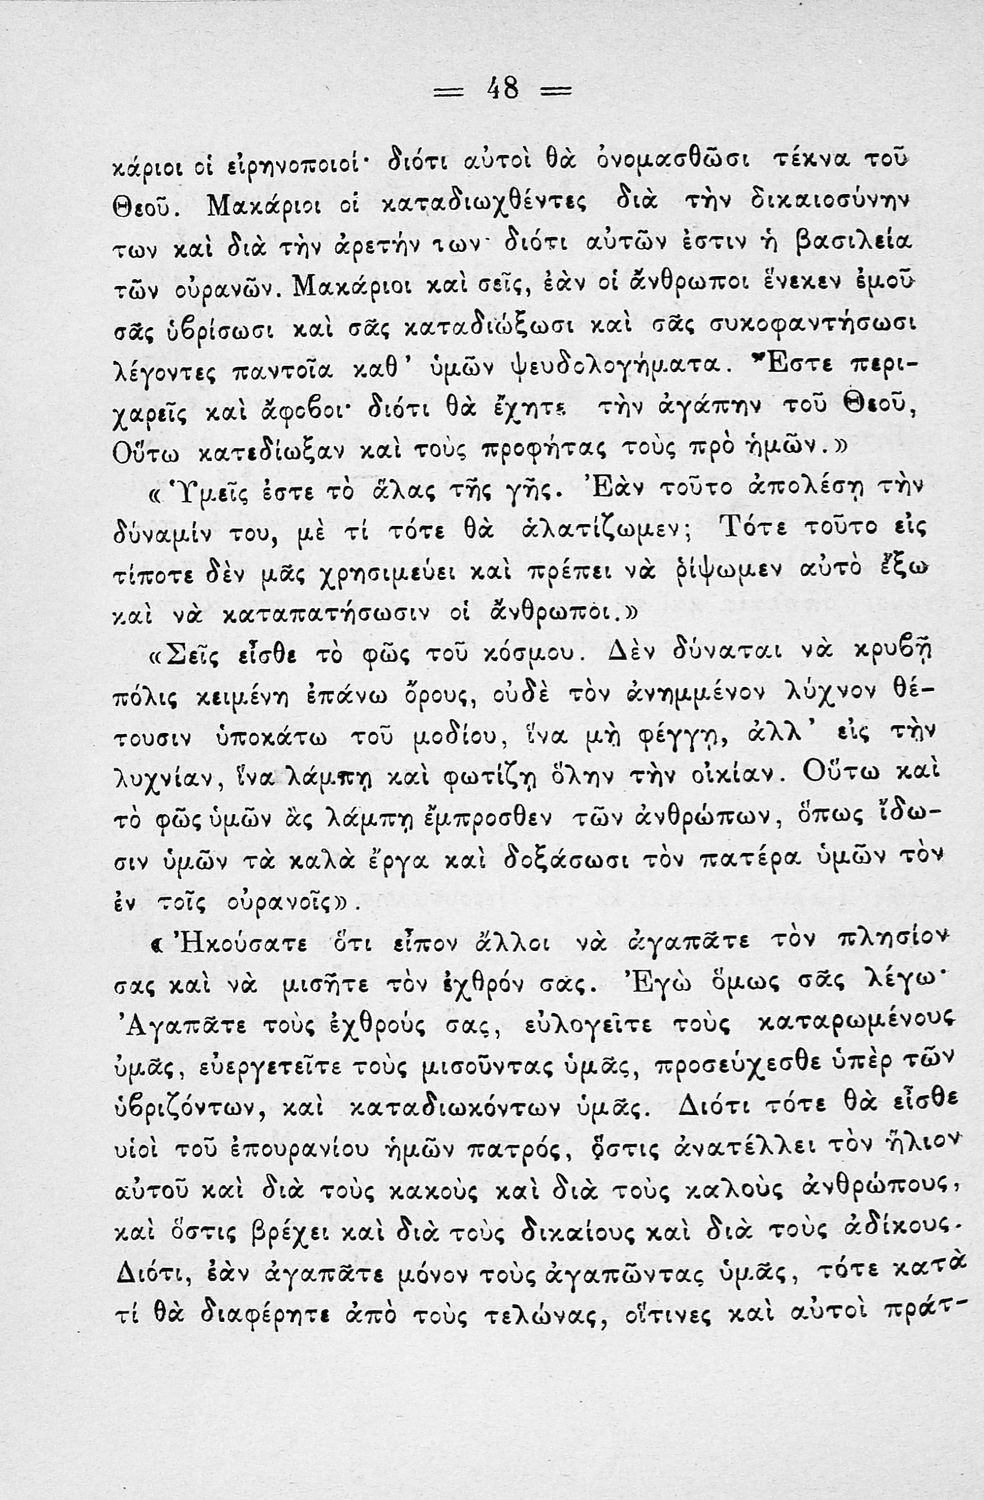 = 48 =
κάριοι οἱ εἰρηνοποιοί· διότι αὐτοὶ θὰ ὀνομασθῶσι τέκνα τοῦ
Θεοῦ. Μακάριοι οἱ καταδιωχθέντες διὰ τὴν δικαιοσύνην
των καὶ διὰ τὴν ἀρετήν των· διότι αὐτῶν ἐστιν ἡ βασιλεία
τῶν οὐρανῶν. Μακάριοι καὶ σεῖς, ἐὰν οἱ ἄνθρωποι ἕνεκεν ἐμοῦ
σᾶς ὑβρίσωσι καὶ σᾶς καταδιώξωσι καὶ σᾶς συκοφαντήσωσι
λέγοντες παντοῖα καθ’ ὑμῶν ψευδολογήματα. Ἔστε περι-
χαρεῖς καὶ ἄφοβοι· διότι θὰ ἔχητε τὴν ἀγάπην τοῦ Θεοῦ,
Οὕτω κατεδίωξαν καὶ τοὺς προφήτας τοὺς πρὸ ἡμῶν.»
« Ὑμεῖς ἐστε τὸ ἅλας τῆς γῆς. Ἐὰν τοῦτο ἀπολέσῃ τὴν
δύναμίν του, μὲ τί τότε θὰ ἁλατίζωμεν; Τότε τοῦτο εἰς
τίποτε δὲν μᾶς χρησιμεύει καὶ πρέπει νὰ ῥίψωμεν αὐτὸ ἔξω
καὶ νὰ καταπατήσωσιν οἱ ἄνθρωποι.»
«Σεῖς εἶσθε τὸ φῶς τοῦ κόσμου. Δὲν δύναται νὰ κρυβῇ
πόλις κειμένη ἐπάνω ὄρους, οὐδὲ τὸν ἀνημμένον λύχνον θέ-
τουσιν ὑποκάτω τοῦ μοδίου, ἵνα μὴ φέγγῃ, ἀλλ’ εἰς τὴν
λυχνίαν, ἵνα λάμπῃ καὶ φωτίζῃ ὅλην τὴν οἰκίαν. Οὕτω καὶ
τὸ φῶς ὑμῶν ἂς λάμπῃ ἔμπροσθεν τῶν ἀνθρώπων, ὅπως ἴδω-
σιν ὑμῶν τὰ καλὰ ἔργα καὶ δοξάσωσι τὸν πατέρα ὑμῶν τὸν
ἐν τοῖς οὐρανοῖς».
« Ἠκούσατε ὅτι εἶπον ἄλλοι νὰ ἀγαπᾶτε τὸν πλησίον
σας καὶ νὰ μισῆτε τὸν ἐχθρόν σας. Ἐγὼ ὅμως σᾶς λέγω·
Ἀγαπᾶτε τοὺς ἐχθρούς σας, εὐλογεῖτε τοὺς καταρωμένους
ὑμᾶς, εὐεργετεῖτε τοὺς μισοῦντας ὑμᾶς, προσεύχεσθε ὑπὲρ τῶν
ὑβριζόντων, καὶ καταδιωκόντων ὑμᾶς. Διότι τότε θὰ εἶσθε
υἱοὶ τοῦ ἐπουρανίου ἡμῶν πατρός, ὅστις ἀνατέλλει τὸν ἥλιον
αὐτοῦ καὶ διὰ τοὺς κακοὺς καὶ διὰ τοὺς καλοὺς ἀνθρώπους,
καὶ ὅστις βρέχει καὶ διὰ τοὺς δικαίους καὶ διὰ τοὺς ἀδίκους.
Διότι, ἐὰν ἀγαπᾶτε μόνον τοὺς ἀγαπῶντας ὑμᾶς, τότε κατὰ
τί θὰ διαφέρητε ἀπὸ τοὺς τελώνας, οἵτινες καὶ αὐτοὶ πράτ-